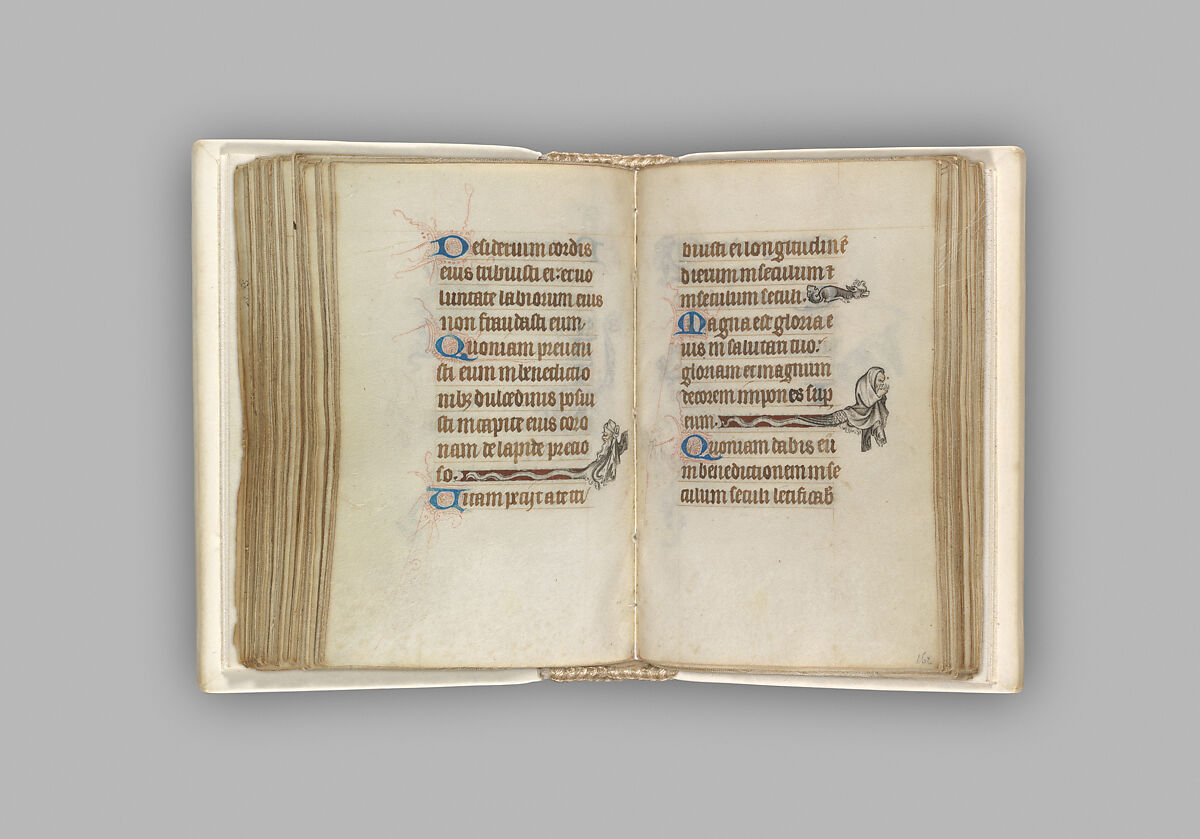 Desiderium cordis
eius tribuisti ei: et uo
luntate labiorum eius
non fraudasti eum.
Quoniam preueni
sti eum in benedictio
nibꝫ dulcedinis posui
sti in capite eius coro
nam de lapide precio
so.
Uitam peciit a te tri
buisti ei longitudinē
dierum in seculum ⁊
in seculum seculi.
Magna est gloria e
ius in salutari tuo:
gloriam et magnum
decorem impones suꝑ
eum.
Quoniam dabis eū
in benedictionem in se
culum seculi letificab
162